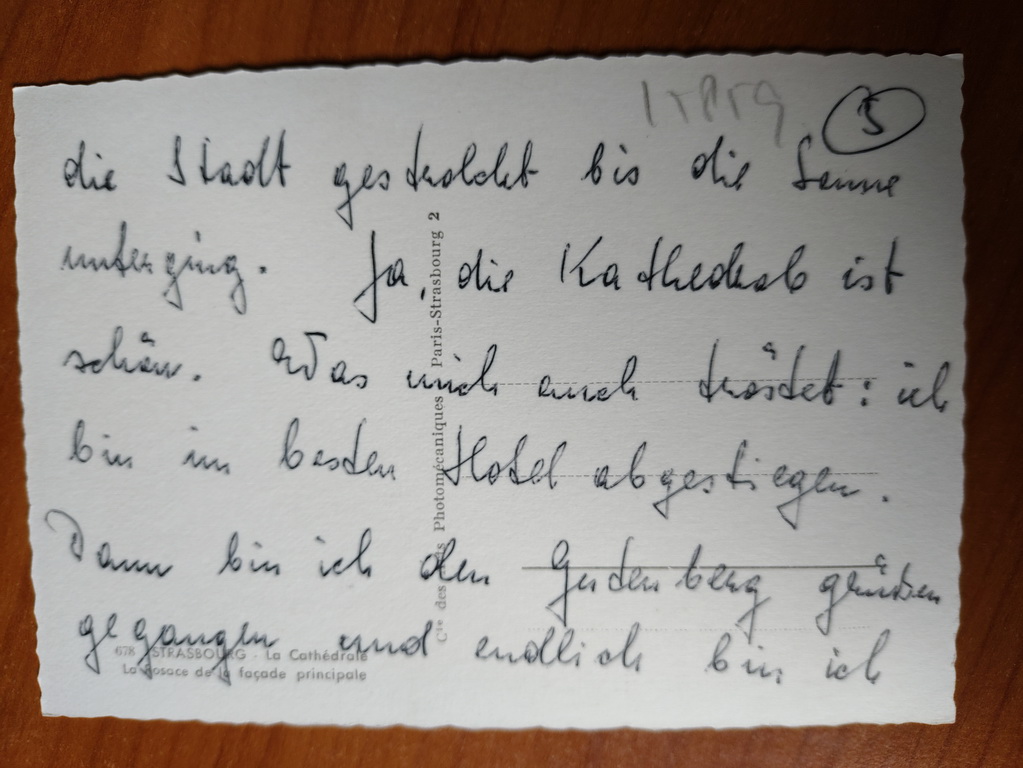 5
die Stadt gestrolcht bis die Sonne
unterging. Ja, die Kathedrale ist
schön. Was mich auch tröstet: ich
bin im besten Hotel abgestiegen.
Dann bin ich den Gutenberg grüßen
gegangen und endlich bin ich
678 STRASBOURG - La Cathédrale
La Rosace de la façade principale
Cie des Photomécaniques Paris-Strasbourg 2